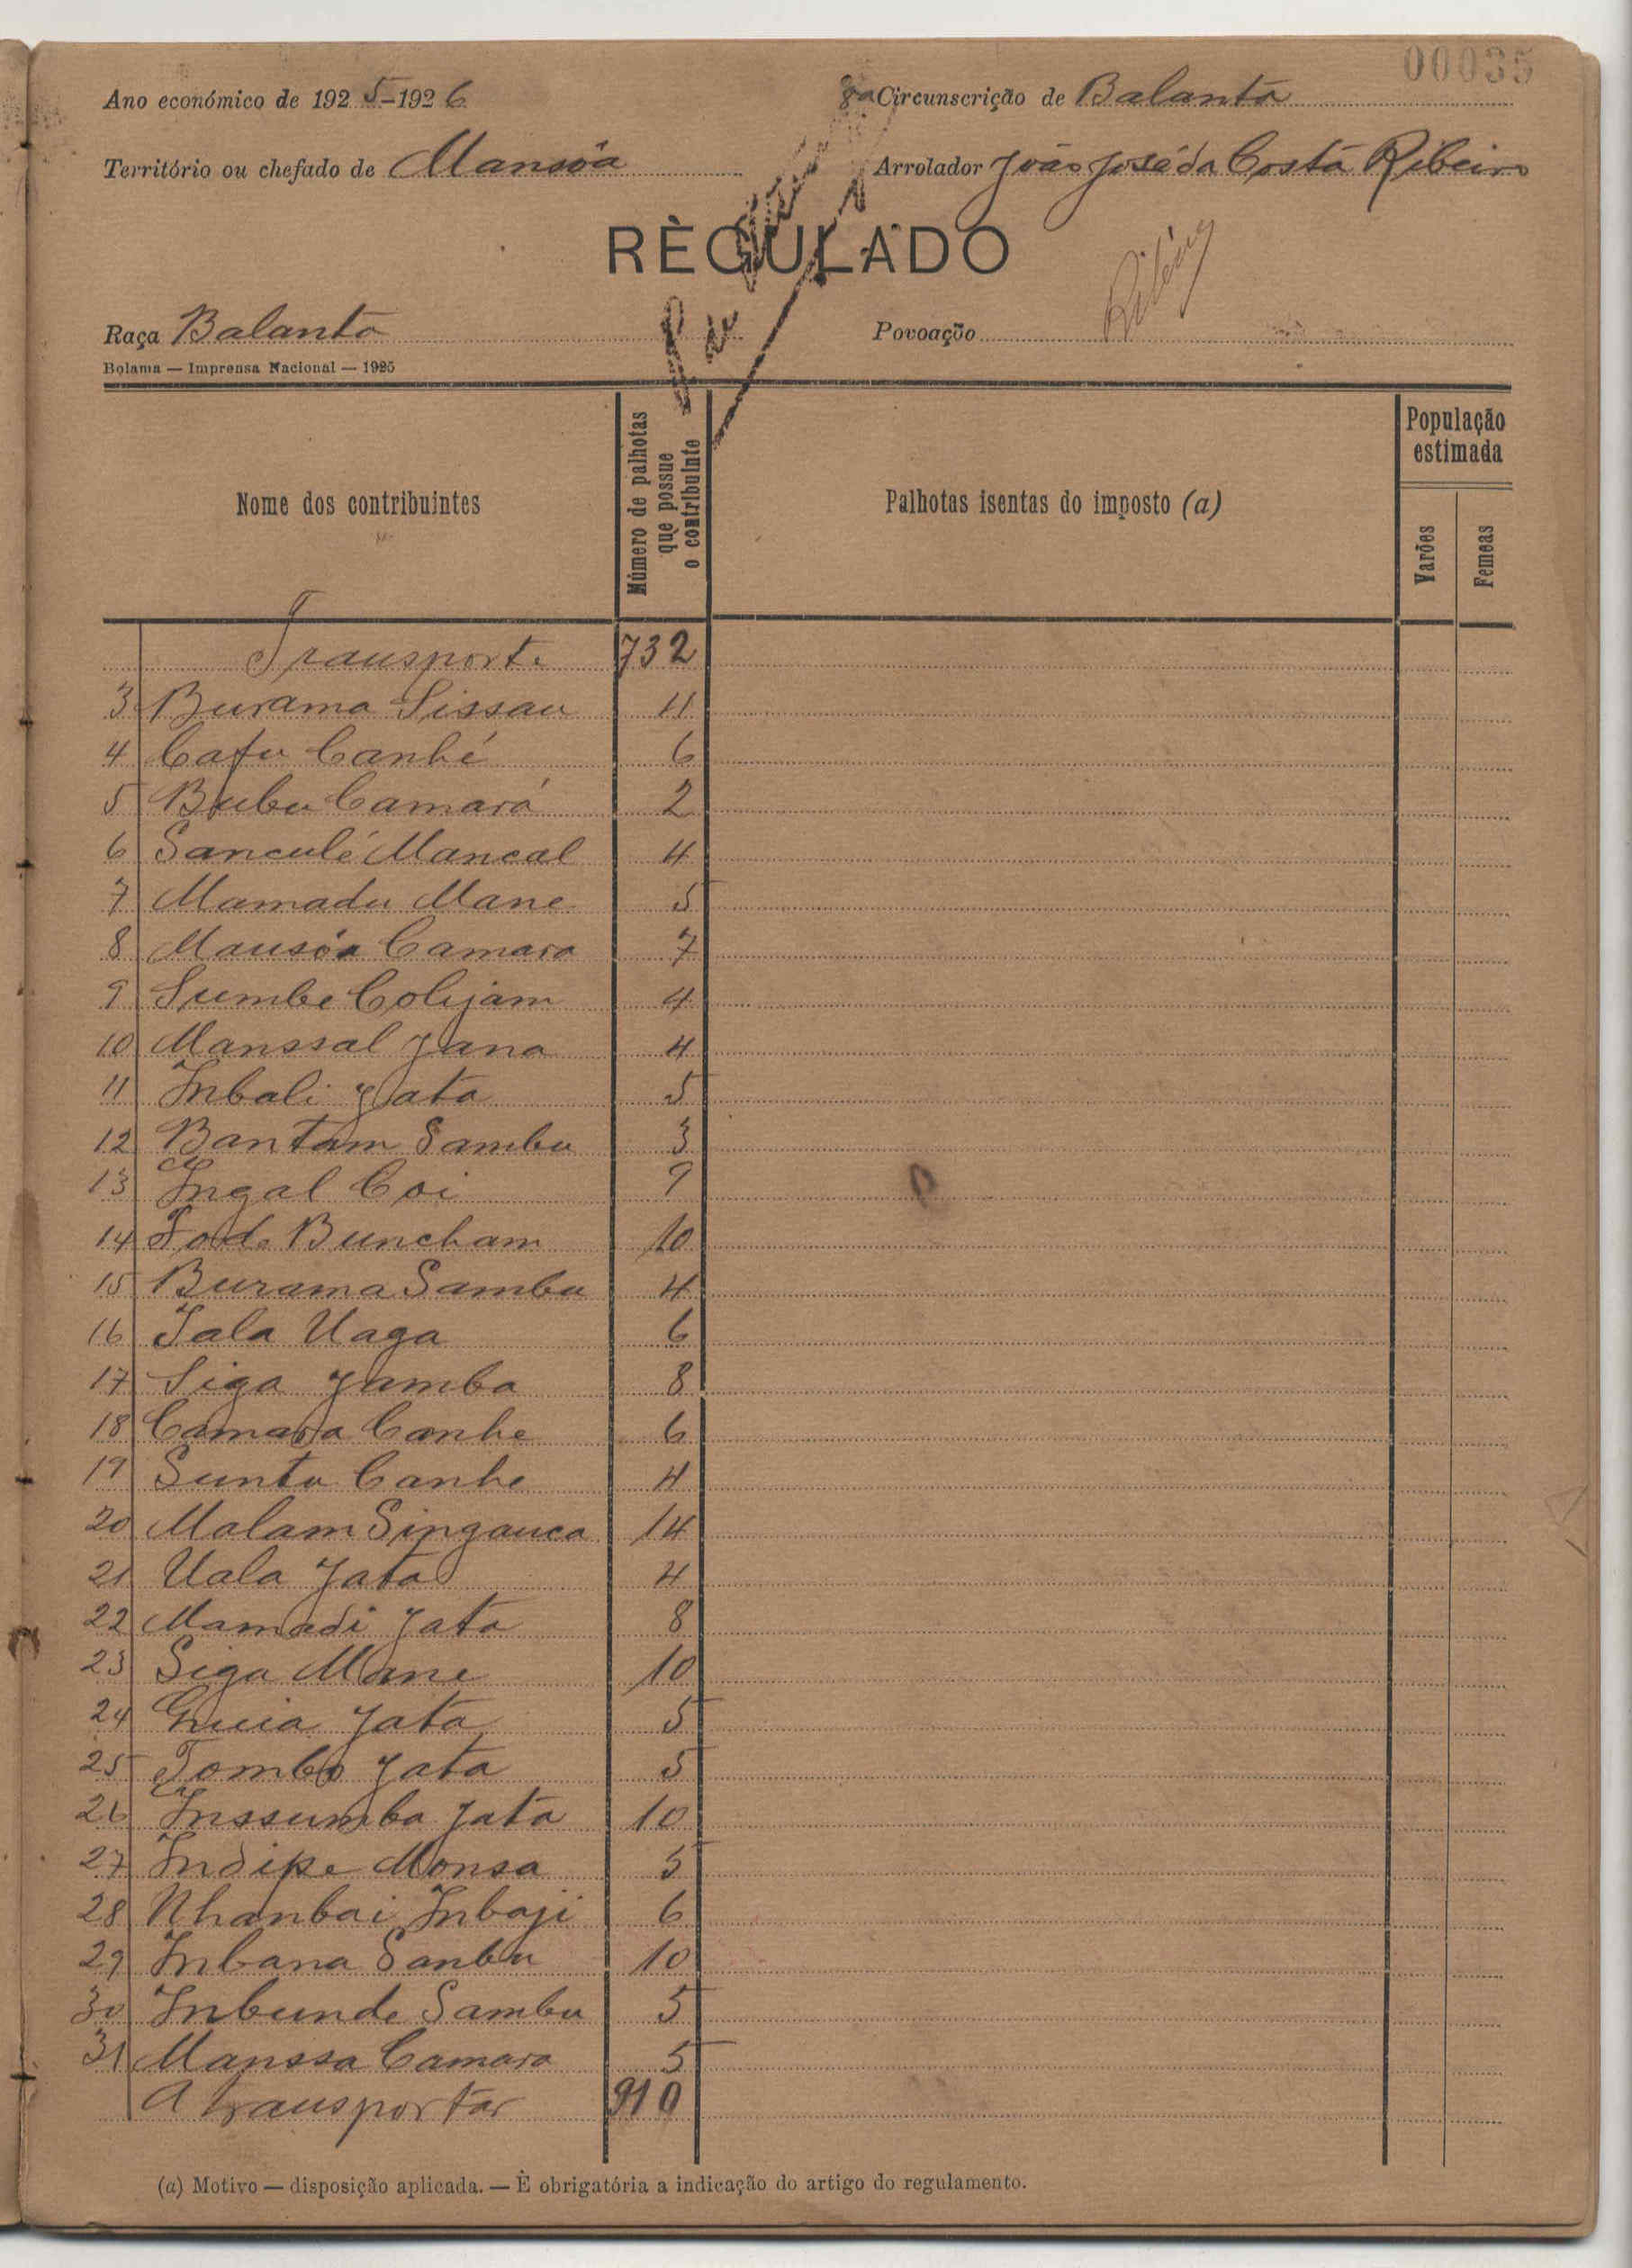 00035
Ano económico de 1925-1926
8ª Circunscrição de Balanta
Território ou chefado de Mansôa
Arrolador João José da Costa Ribeiro
RÈGULADO
Raça Balanta
Povoação
Bolama — Imprensa Nacional — 1925
Nome dos contribuintes
Número de palhotas que possue o contribuinte
Palhotas isentas do imposto (a)
População estimada
Varões
Femeas
Transporte 732
3 Burama Sissau 11
4 Cafu Canhé 6
5 Bubu Camará 2
6 Sanculé Mancal 4
7 Mamadu Mane 5
8 Mausôa Camara 7
9 Sumbe Colijam 4
10 Manssal Jana 4
11 Inbali Jata 5
12 Bantam Sambu 3
13 Ingal Coi 9
14 Fode Buncham 10
15 Burama Sambu 4
16 Iala Uaga 6
17 Siga Jamba 8
18 Camara Canhe 6
19 Suntu Canhe 4
20 Malam Singauca 14
21 Uala Jata 4
22 Mamadi Jata 8
23 Siga Mane 10
24 Jata 5
25 Tombo Jata 5
26 Inssumba Jata 10
27 Indipe Monsa 5
28 Nhanbai Inbaji 6
29 Inbana Sanbu 10
30 Inbunde Sambu 5
31 Manssa Camara 5
A transportar 910
(a) Motivo — disposição aplicada. — È obrigatória a indicação do artigo do regulamento.